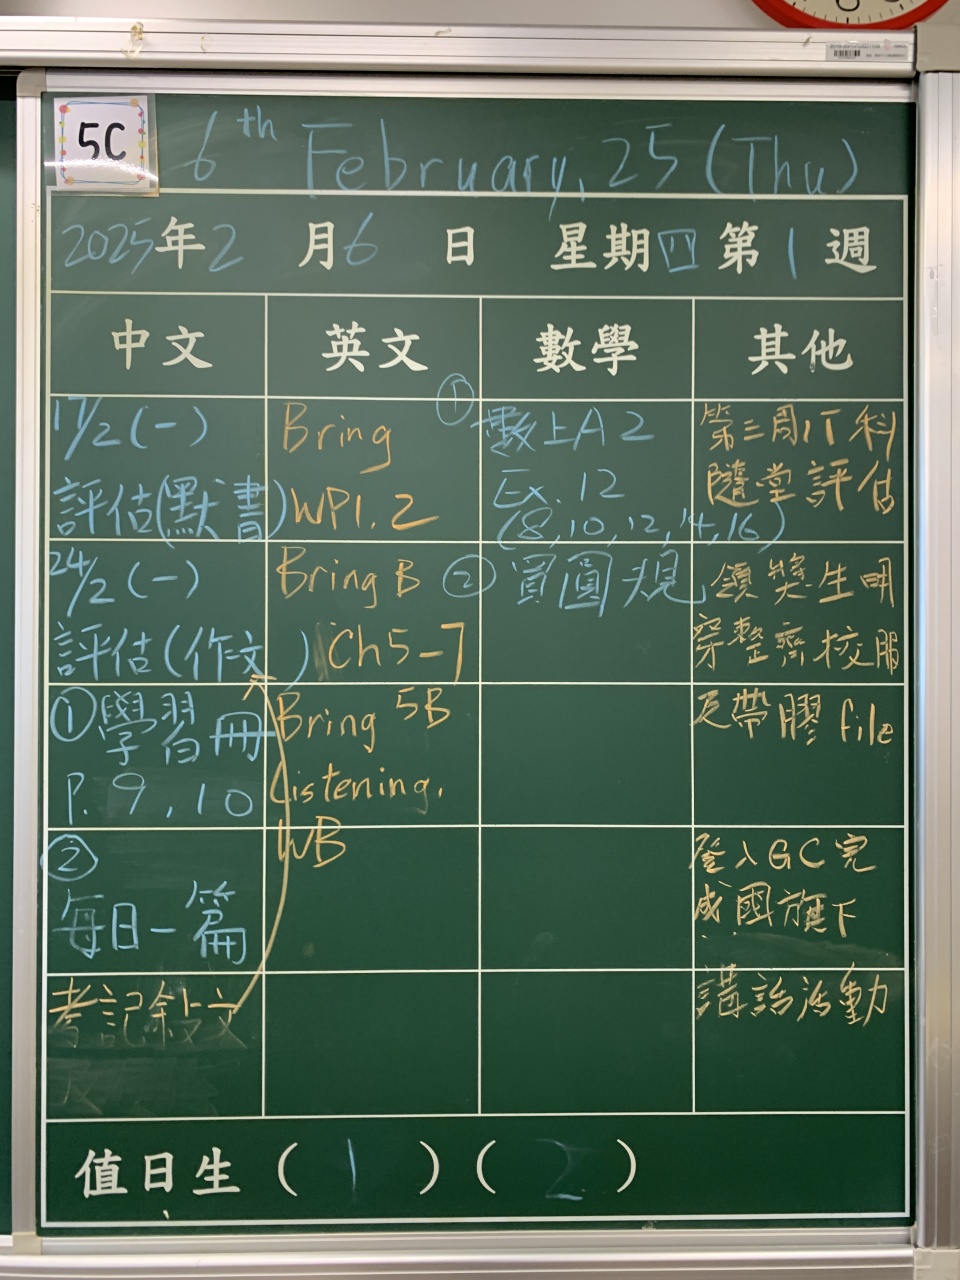 5C
6th February, 25 (Thu)
2025年2月6日 星期四 第1週
中文
英文
數學
其他
17/2 (一)
評估(默書)
24/2 (一)
評估(作文)
①學習冊
P. 9, 10
②
每日一篇
考記敍文
Bring
WP1, 2
Bring B
Ch5-7
Bring 5B
Listening,
WB
① 數上A2
Ex. 12
(8, 10, 12, 14, 16)
② 買圓規
第三周IT科
隨堂評估
領獎生明
穿整齊校服
及帶膠file
登入GC完
成國旗下
講話活動
值日生 ( 1 ) ( 2 )